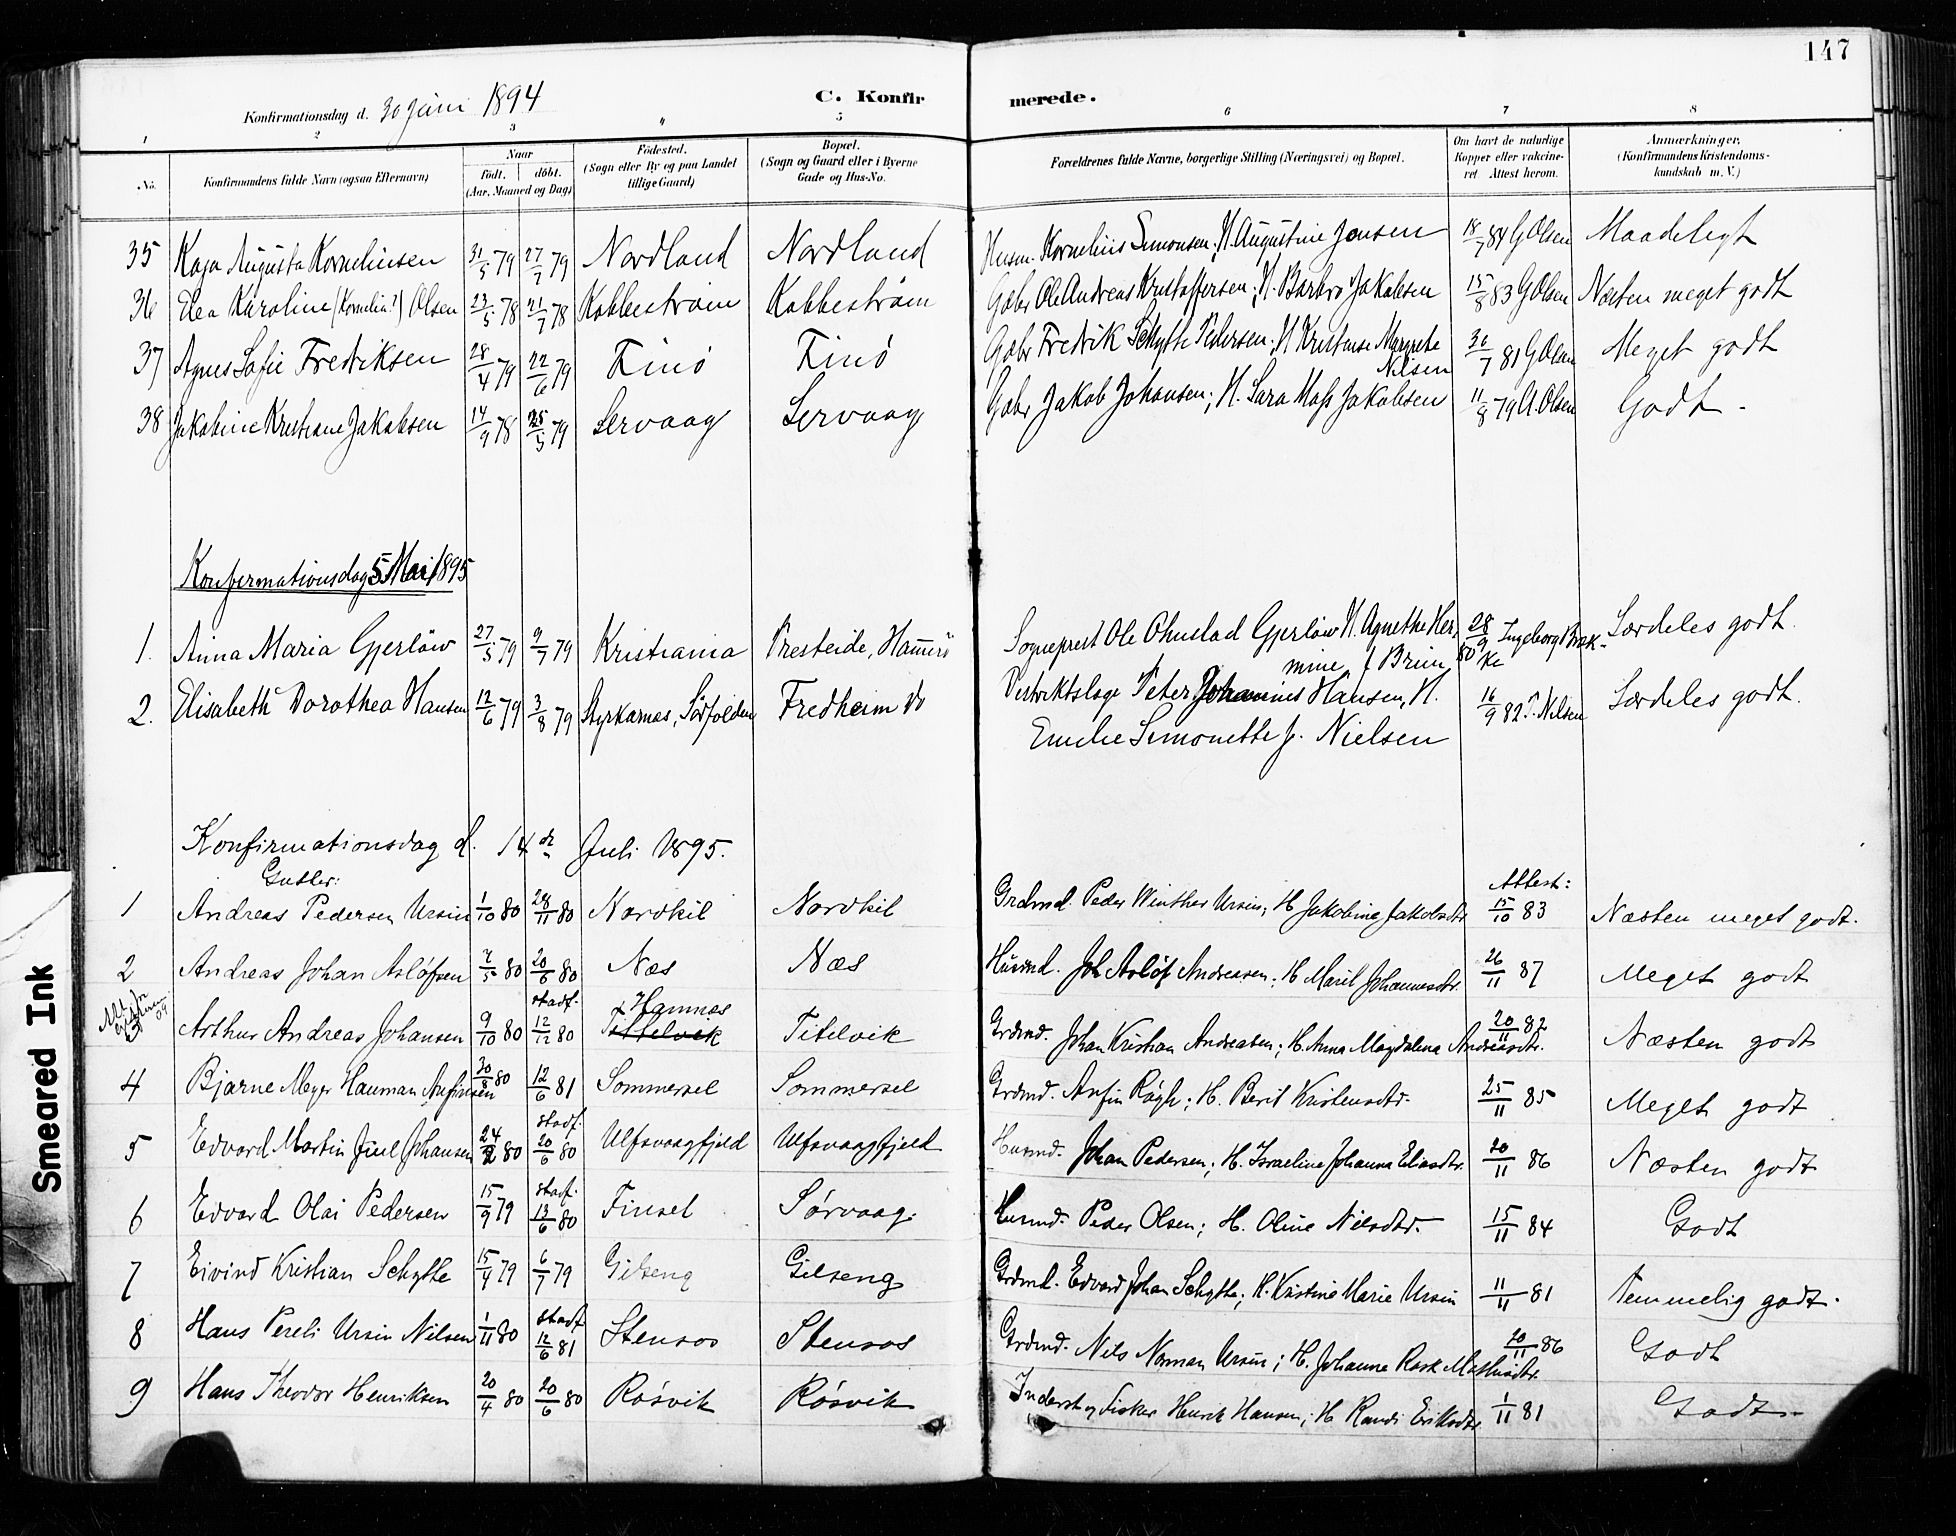 147
Konfirmationsdag d. 30 Juni 1894
C. Konfirmerede.
1 2 3 4 5 6 7 8
No. Konfirmandens fulde Navn (ogsaa Efternavn) Naar født. døbt. (Aar, Maaned og Dag) Fødested. (Sogn eller By og paa Landet tillige Gaard) Bopæl. (Sogn og Gaard eller i Byerne Gade og Hus-No. Forældrenes fulde Navne, borgerlige Stilling (Næringsvei) og Bopæl. Om havt de naturlige Kopper eller vakcineret. Attest herom. Anmærkninger. (Konfirmandens Kristendomskundskab m. V.)
35 Kaja Augusta Korneliusen 31/5 79 27/7 79 Nordland Nordland Husm. Kornelius Simonsen; H. Augustine Jensen 18/7 84 G Olsen Maadeligt
36 Elea Karoline (Kornelia?) Olsen 23/5 78 21/7 78 Kobbestrøm Kobbestrøm Gbr Ole Andreas Kristoffersen; H. Barbro Jakobsen 15/8 83 G Olsen Næsten meget godt
37 Agnes Sofie Fredriksen 28/4 79 22/6 79 Finø Finø Gbr Fredrik Schytte Pedersen; H Kristense Margrete Nilsen 30/7 81 G Olsen Meget godt
38 Jakobine Kristiane Jakobsen 14/9 78 25/5 79 Servaag Servaag Gbr Jakob Johansen; H. Sara Mass Jakobsen 11/8 79 A. Olsen Godt.
Konfirmationsdag 5 Mai 1895
1. Anna Maria Gjerløw 27/5 79 9/7 79 Kristiania Presteide, Hammerø Sogneprest Ole Ohnstad Gjerløw H. Agnethe Hermine f Brun 28/9 80 Ingeborg Brokke Særdeles godt.
2. Elisabeth Dorothea Hansen 12/6 79 3/8 79 Styrkesnæs, Sørfolden Fredheim Do Distriktslæge Peter Johannes Hansen, H. Emilie Simonette f. Nielsen 16/9 82 T. Nilsen Særdeles godt.
Konfirmationsdag d. 14de Juli 1895.
Gutter: Attest:
1 Andreas Pedersen Ursin 1/10 80 28/11 80 Nordkil Nordkil Grdmd. Peder Winther Ursin; H Jakobine Jakobsdtr 15/10 83 Næsten meget godt.
2 Andreas Johan Asløfsen 7/5 80 20/6 80 Næs Næs Husmd. Joh Asløf Andreasen; H Marit Johannesdtr. 26/11 87 Meget godt
3 Arthur Andreas Johansen 9/10 80 stadf. 12/12 80 x Hamnes Tittelvik Titelvik Grdmd. Johan Kristian Andreasen; H. Anna Magdalena Andreasdtr. 20/11 82 Næsten godt
4 Bjarne Meyer Hauman Anfinsen 30/8 80 12/6 81 Sommersel Sommersel Grdmd. Anfin Røgh; H. Berit Kristensdtr. 25/11 85 Meget godt
5 Edvard Martin Juul Johansen 24/2 80 stadf. 20/6 80 Ulfsvaagfjeld Ulfsvaagfjeld Husmd. Johan Pedersen; H. Israeline Johanna Eliasdtr. 20/11 86 Næsten godt
6 Edvard Olai Pedersen 15/9 79 stadf. 13/6 80 Finset Sørvaag. Husmd. Peder Olsen; H. Oline Nilsdtr. 15/11 84 Godt
7 Eivind Kristian Schytte 15/4 79 6/7 79 Gitseng Gitseng Grdmd. Edvard Johan Schytte; H. Kristine Marie Ursin 11/11 81 Temmelig godt.
8 Hans Pereli Ursin Nilsen 1/11 80 stadf 12/6 81 Stensos Stensos Grdmd. Nils Norman Ursin; H. Johanna Rask Mathisdtr. 20/11 86 Godt
9 Hans Theodor Henriksen 20/4 80 20/6 80 Røsvik Røsvik Inderst og Fisker Henrik Hansen; H Randi Eriksdtr 1/11 81 Godt.
Smeared Ink